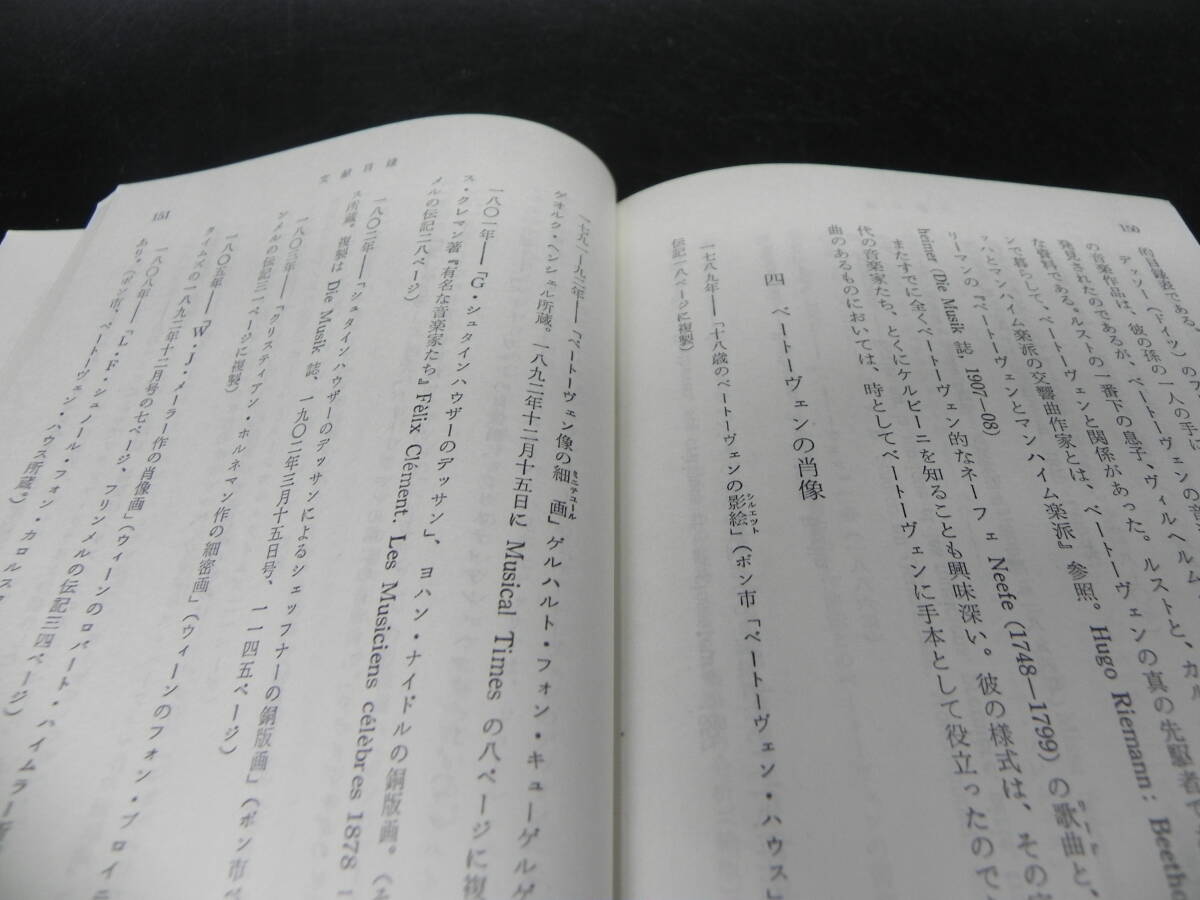 150
的記録である。
デッソー（ドイツ）の
の音楽作品は、彼の孫の一人の手に
発見されたのであるが、ベートーヴェンの音
な資料である。ルストの一番下の息子、ヴィルヘルム
ンで暮らして、ベートーヴェンと関係があった。ルストと、カル
ァハとマンハイム楽派の交響曲作家とは、ベートーヴェンの真の先駆者で
リーマンの『ベートーヴェンとマンハイム楽派』参照。Hugo Riemann: Beetho
heimer (Die Musik 誌 1907—08)
またすでに全くベートーヴェン的なネーフェ Neefe (1748—1799) の歌曲と、
代の音楽家たち、とくにケルビーニを知ることも興味深い。彼の様式は、その
曲のあるものにおいては、時としてベートーヴェンに手本として役立ったので
四 ベートーヴェンの肖像
一七八九年——「十八歳のベートーヴェンの影絵」（ボン市「ベートーヴェン・ハウス」
シルエット
伝記一八ページに複製）
文献目録
151
一七九一—九二年——「ベートーヴェン像の細画」ゲルハルト・フォン・キューゲルゲ
ミニアチュール
ゲオルク・ヘンシェル所蔵。一八九二年十二月十五日に Musical Times の八ページに複
一八〇一年——「G・シュタインハウザーのデッサン」、ヨハン・ナイドルの銅版画。
ス・クレマン著『有名な音楽家たち』Félix Clément. Les Musiciens célèbres 1878
メルの伝記二八ページ）
一八〇二年——「シュタインハウザーのデッサンによるシェッフナーの銅版画」（ボン市
ス所蔵。複製は Die Musik 誌、一九〇二年三月十五日号、一一四五ページ）
一八〇三年——「クリスティアン・ホルネマン作の細密画」（ウィーンのフォン・ブロイニ
ンメルの伝記三一ページに複製）
一八〇五年——「W・J・メーラー作の肖像画」（ウィーンのロバート・ハイムラー
タイムズの一八九二年十二月号の七ページ、フリンメルの伝記三四ページ）
一八〇八年——「L・F・シュノール・フォン・カロルス
あり。（ボン市、ベートーヴェン・ハウス所蔵。）